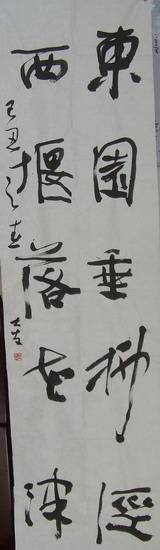 東園垂柳徑
西堰落花津
己丑之春